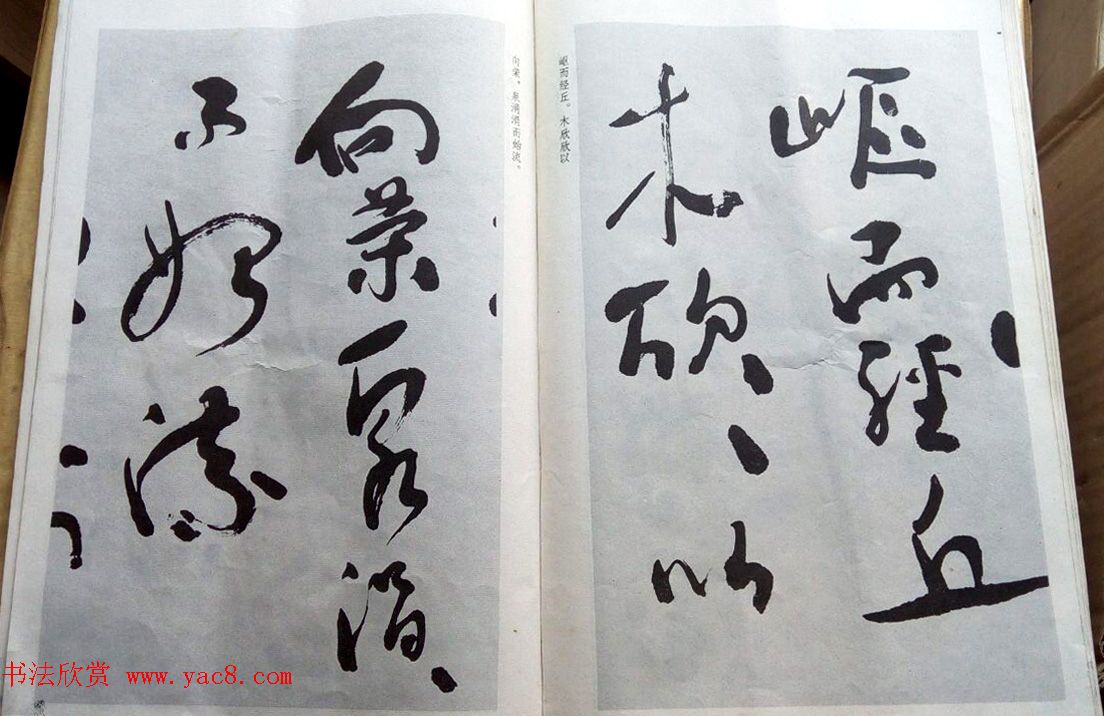 岖而经丘。木欣欣以
嶇而經丘
木欣、、以
向荣，泉涓涓而始流。
向榮泉涓、
而始流
书法欣赏 www.yac8.com